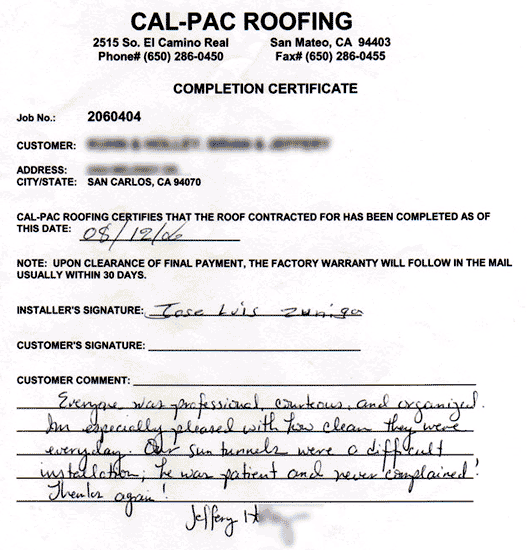 CAL-PAC ROOFING
2515 So. El Camino Real San Mateo, CA 94403
Phone# (650) 286-0450 Fax# (650) 286-0455
COMPLETION CERTIFICATE
Job No.: 2060404
CUSTOMER:
ADDRESS:
CITY/STATE: SAN CARLOS, CA 94070
CAL-PAC ROOFING CERTIFIES THAT THE ROOF CONTRACTED FOR HAS BEEN COMPLETED AS OF
THIS DATE: 08/12/06
NOTE: UPON CLEARANCE OF FINAL PAYMENT, THE FACTORY WARRANTY WILL FOLLOW IN THE MAIL
USUALLY WITHIN 30 DAYS.
INSTALLER'S SIGNATURE: Jose Luis Zuniga
CUSTOMER'S SIGNATURE:
CUSTOMER COMMENT:
Everyone was professional, courteous, and organized.
Im especially pleased with how clean they were
everyday. Our sun tunnels were a difficult
installation; he was patient and never complained!
Thanks again!
Jeffery